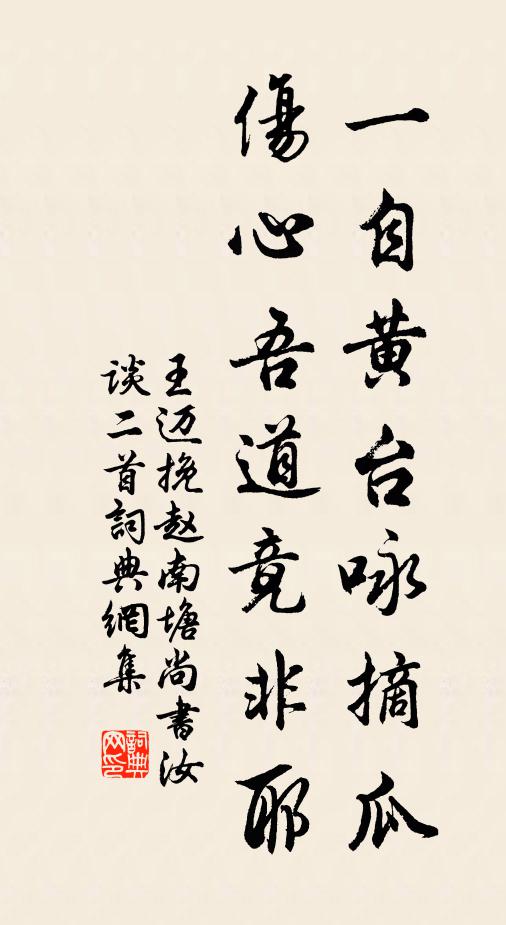 一自黄台咏摘瓜
傷心吾道竟非耶
王迈挽赵南塘尚書汝
谈二首詞典網集
詞典
网印